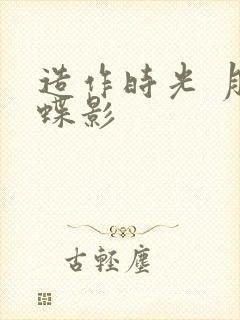 造作時光 月
蝶影
古輕塵